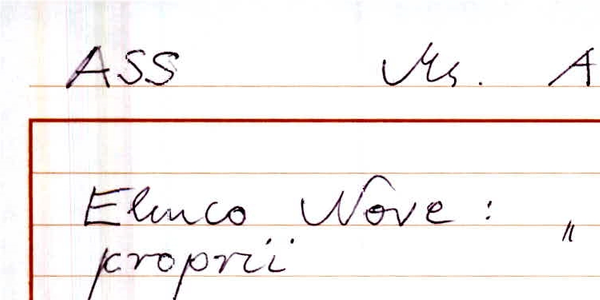 ASS Ms. A
Elenco Nove: „
proprii